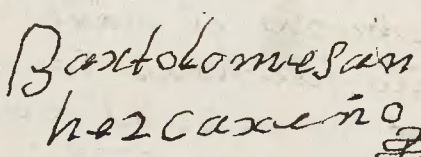 Bartolomesan
hezcareño